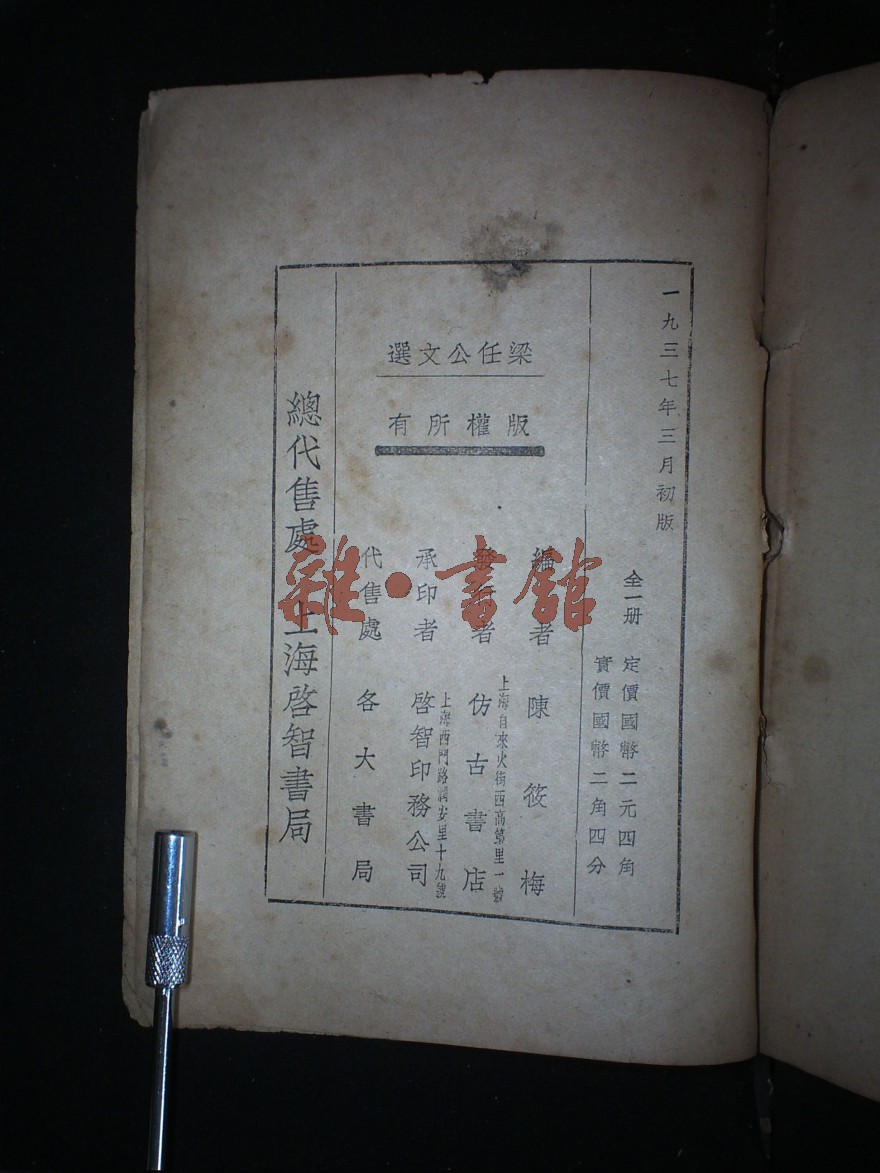 一九三七年三月初版
全一册 定價國幣二元四角
實價國幣二角四分
梁任公文選
版權所有
編者 陳筱梅
上海自來火街西高第里一號
發行者 仿古書店
上海西門路潤安里十九號
承印者 啓智印務公司
代售處 各大書局
總代售處 上海啓智書局
雜·書館